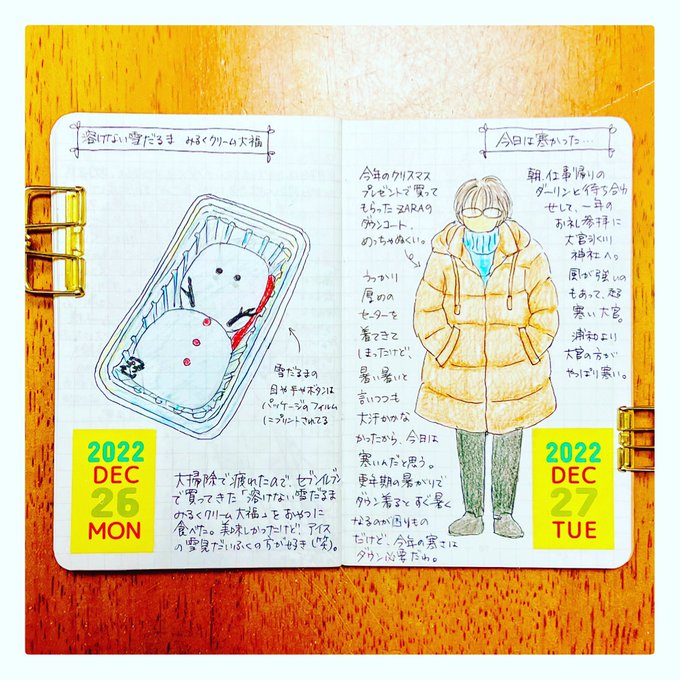 溶けない雪だるま みるくクリーム大福
雪だるまの
目や手やボタンは
パッケージのフィルム
にプリントされてる
2022
DEC
26
MON
大掃除で疲れたので、セブンイレブン
で買ってきた「溶けない雪だるま
みるくクリーム大福」をおやつに
食べた。美味しかったけど、アイス
の雪見だいふくの方が好き(笑)。
今日は寒かった…
今年のクリスマス
プレゼントで買って
もらったZARAの
ダウンコート。
めっちゃぬくい。
うっかり
厚めの
セーターを
着てきて
しまったけど、
暑い暑いと
言いつつも
大汗かかな
かったから、今日は
寒いんだと思う。
更年期の暑がりで
ダウン着るとすぐ暑く
なるのが困りもの
だけど、今年の寒さは
ダウン必要だわ。
朝、仕事帰りの
ダーリンと待ち合わ
せして、一年の
お礼参拝に
大宮氷川
神社へ。
風が強いの
もあって、超
寒い大宮。
浦和より
大宮の方が
やっぱり寒い。
2022
DEC
27
TUE